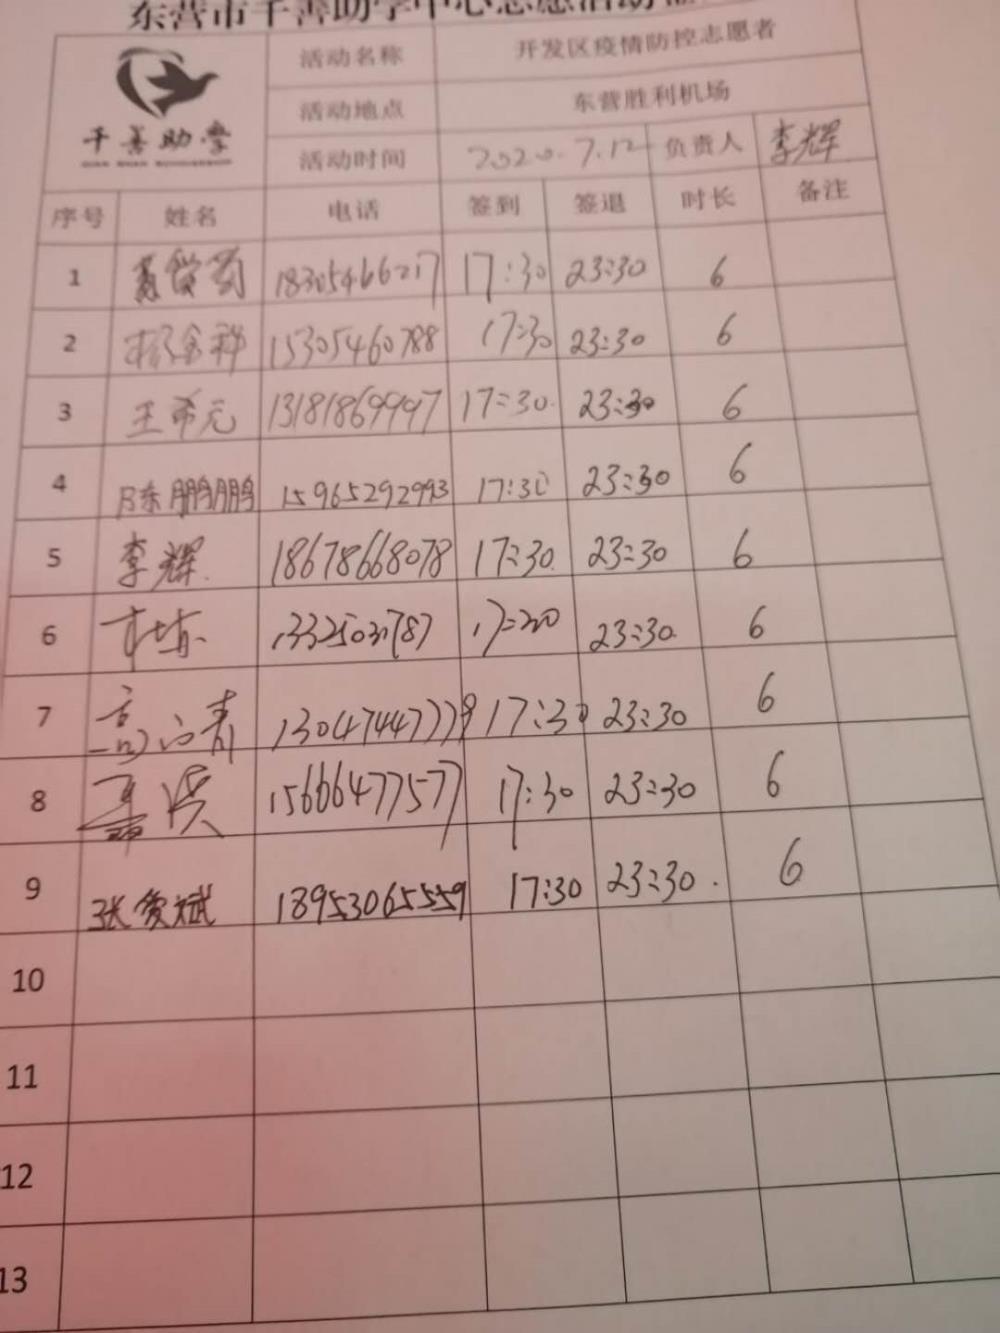 东营市千善助学中心志愿活动
千善助学
活动名称 开发区疫情防控志愿者
活动地点 东营胜利机场
活动时间 2020.7.12 负责人 李辉
序号 姓名 电话 签到 签退 时长 备注
1 18305466217 17:30 23:30 6
2 15305460788 17:30 23:30 6
3 王希元 13181869997 17:30 23:30 6
4 陈鹏鹏 15965292993 17:30 23:30 6
5 李辉 18678668078 17:30 23:30 6
6 17:30 23:30 6
7 17:30 23:30 6
8 15666477577 17:30 23:30 6
9 张俊斌 18953065559 17:30 23:30 6
10
11
12
13